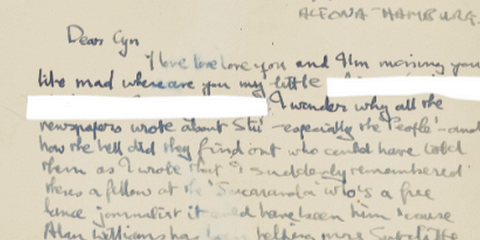 ALTONA-HAMBURG.
Dear Cyn
I love love love you and I'm missing you
like mad where are you my little
I wonder why all the
newspapers wrote about Stu - especially the 'People' - and
how the hell did they find out who could have told
them as I wrote that I suddenly remembered
theres a fellow at the 'Jacaranda' who's a free
lance journalist it could have been him 'cause
Alan Williams has been helping